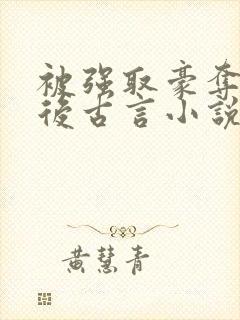 被强取豪夺
後古言小説
黄慧青